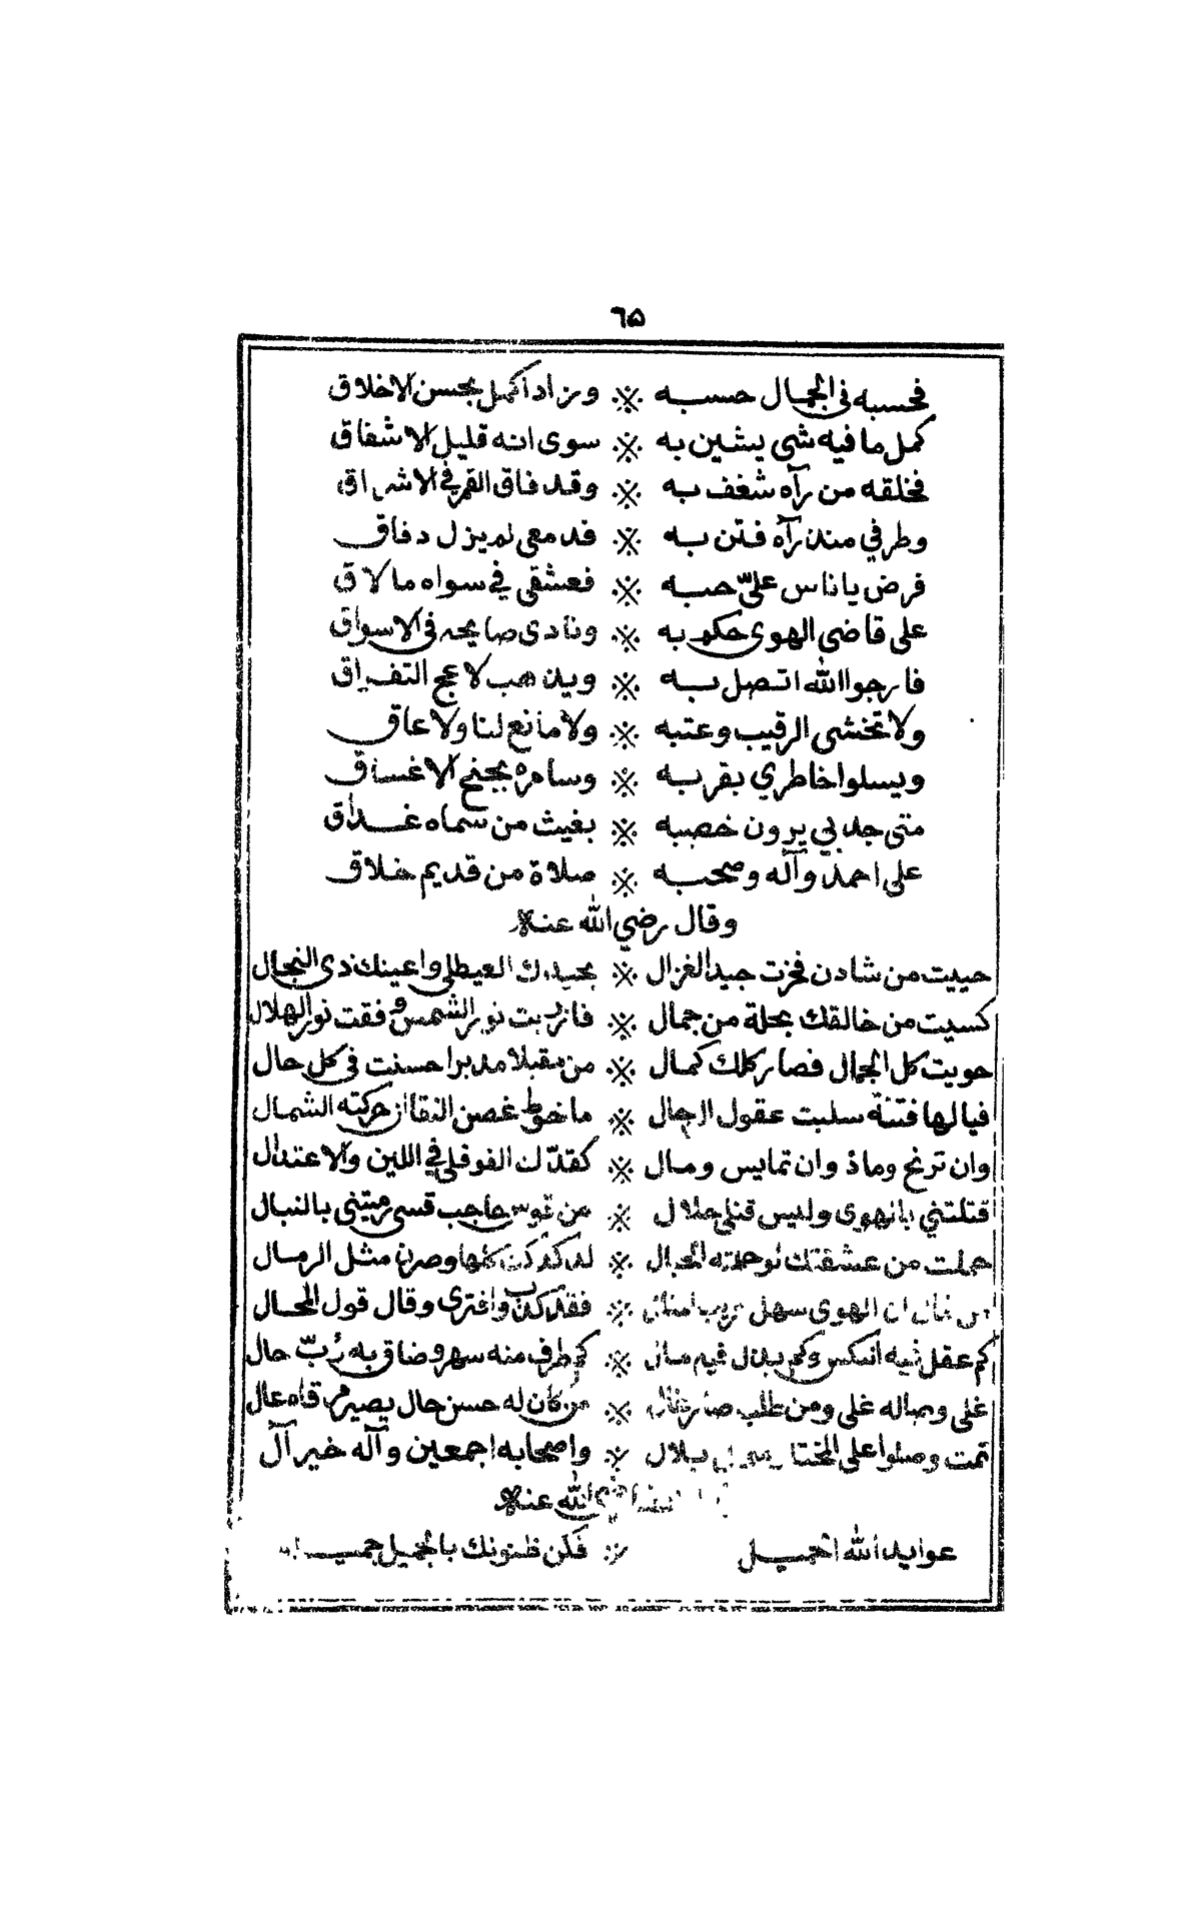 ٦٥
فحسبه في الجمال حسبه ※ وزاد اكمل بحسن الاخلاق
كمل مافيه شي يشين به ※ سوى انه قليل الاشفاق
فخلقه من رآه شغف به ※ وقد فاق القمر في الاشراق
وطرفي منذ رآه فتن به ※ فدمعي لم يزل دفاق
فرض ياناس عليّ حبه ※ فعشقي في سواه مالاق
على قاضي الهوى حكم به ※ ونادى صايحه في الاسواق
فارجوا الله اتصل به ※ ويذهب لاعج التفراق
ولا تخشى الرقيب وعتبه ※ ولا مانع لنا ولا عاق
ويسلوا خاطري بقربه ※ وسامره بجنح الاغساق
متى جدبي يرون خصبه ※ بغيث من سماه غداق
على احمد وآله وصحبه ※ صلاة من قديم خلاق
وقال رضي الله عنه
حييت من شادن فخزت جيد الغزال ※ بجيدك العيطلي واعينك ذي النجال
كسيت من خالقك بحلة من جمال ※ فازريت نور الشمس وفقت نور الهلال
حويت كل الجمال فصار كلك كمال ※ من مقبلا مدبرا حسنت في كل حال
فيالها فتنة سلبت عقول الرجال ※ ماخوط غصن النقا از حركته الشمال
وان ترنح وماذ وان تمايس ومال ※ كقدّك الفوفلي في اللين والاعتدال
قتلتني بالهوى وليس قتلي حلال ※ من قوس حاجب قسي رميتني بالنبال
حملت من عشقتك لو حملته الجبال ※ لدكدكت كلها وصرن مثل الرمال
ان الهوى سهل قريب ※ فقد كذب وافترى وقال قول المحال
كم عقل فيه انعكس وكم بذل فيه مال ※ كم طرف منه سهر وضاق به رُبّ حال
غلي وصاله غلي ومن طلب صار ※ من كان له حسن حال يصير مرقاه عال
تمت وصلوا على المختار بلال ※ واصحابه اجمعين وآله خير آل
الله عنه
عوايد الله الجميل ※ فكن ظنونك بالجميل جميله